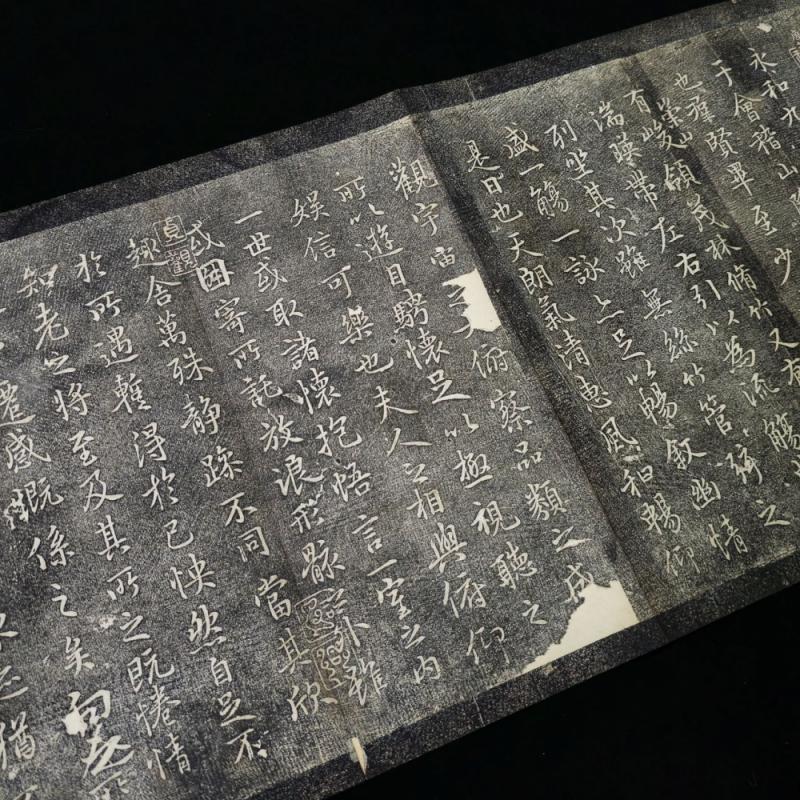 永和九
于會稽山
也羣賢畢至少
有崇山峻領茂林脩竹又有
湍暎帶左右引以為流觴
列坐其次雖無絲竹管弦之
盛一觴一詠亦足以暢敘幽情
是日也天朗氣清惠風和暢仰
觀宇宙之大俯察品類之盛
所以遊目騁懷足以極視聽之
娛信可樂也夫人之相與俯仰
一世或取諸懷抱悟言一室之內
或因寄所託放浪形骸之外雖
貞觀
趣舍萬殊靜躁不同當其欣
於所遇暫得於己怏然自足不
知老之將至及其所之既惓情
遷感慨係之矣向之所
迹猶